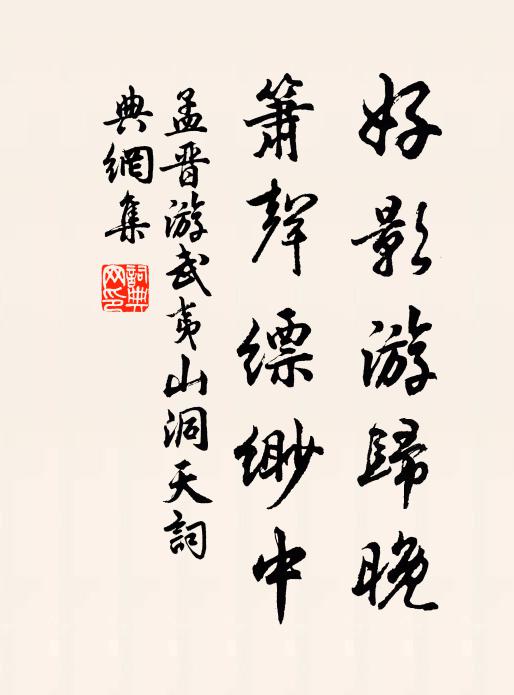 好影游歸晚
簫聲縹緲中
孟晋游武夷山洞天詞
典網集
詞典网印